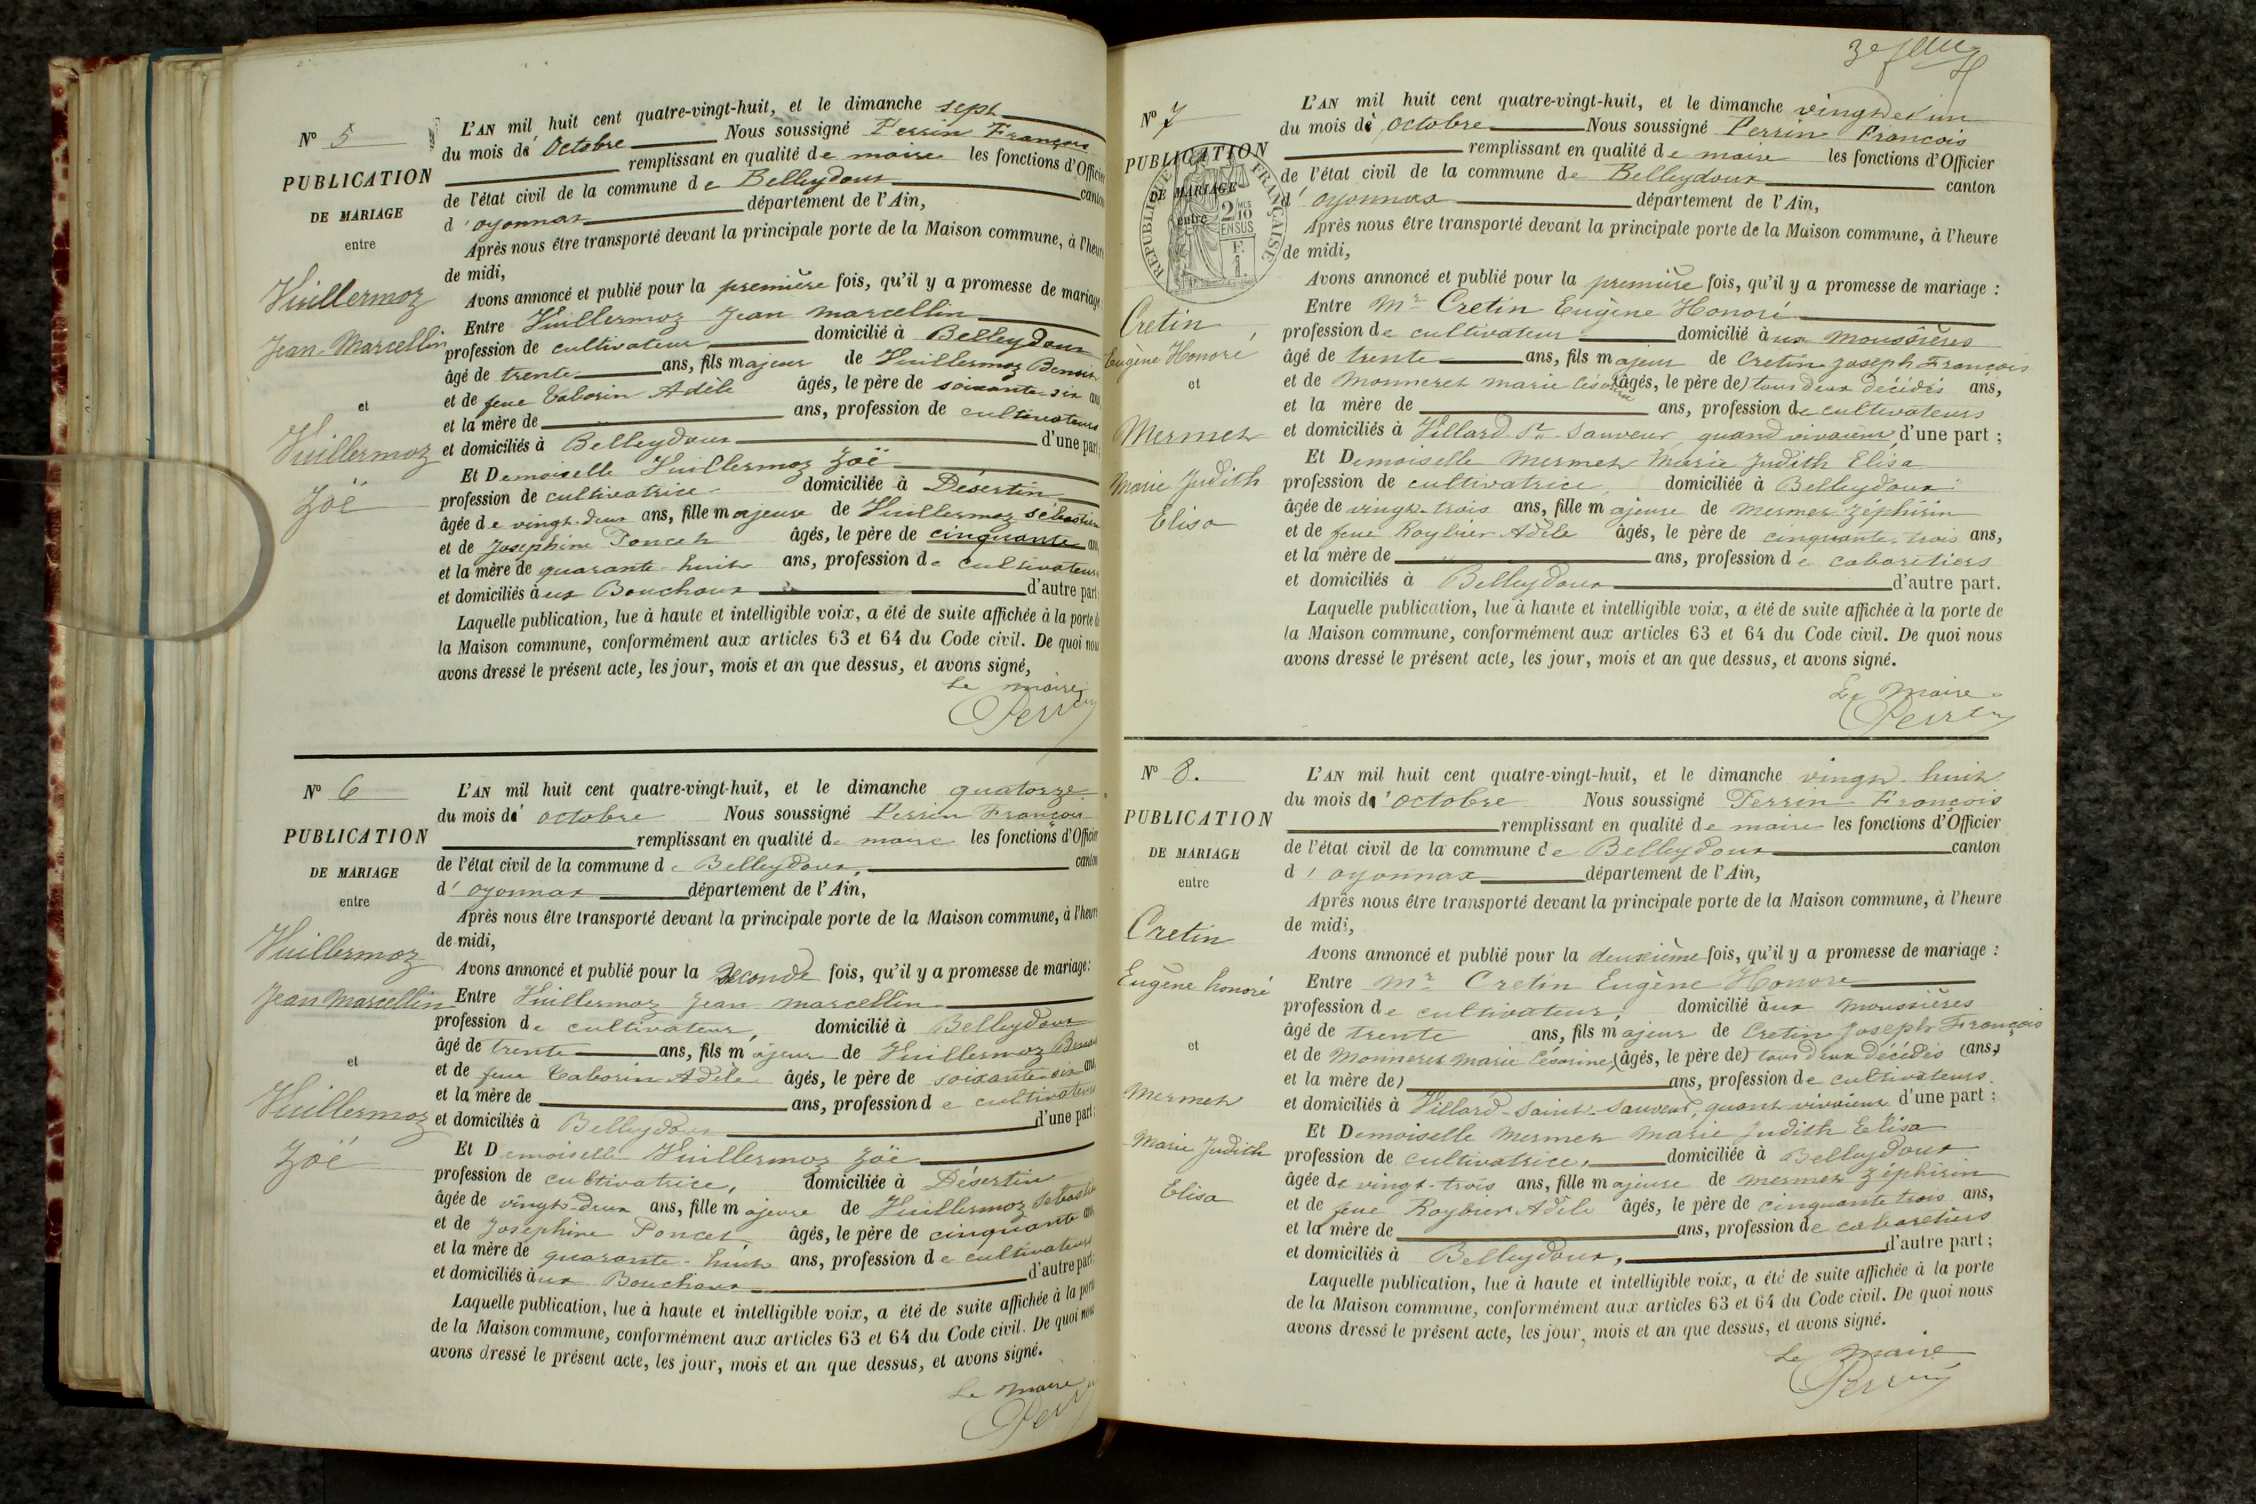 Nº 5
PUBLICATION
DE MARIAGE
entre
Vuillermoz
Jean Marcellin
et
Vuillermoz
Zoë
L'AN mil huit cent quatre-vingt-huit, et le dimanche sept
du mois d'Octobre Nous soussigné Perrin François
remplissant en qualité de maire les fonctions d'Officier
de l'état civil de la commune de Belleydoux canton
d'oyonnax département de l'Ain,
Après nous être transporté devant la principale porte de la Maison commune, à l'heure
de midi,
Avons annoncé et publié pour la première fois, qu'il y a promesse de mariage
Entre Vuillermoz Jean marcellin
profession de cultivateur domicilié à Belleydoux
âgé de trente ans, fils majeur de Vuillermoz Benoit
et de feue Taborin Adèle âgés, le père de soixante-six ans
et la mère de ans, profession de cultivateurs
et domiciliés à Belleydoux d'une part;
Et Demoiselle Vuillermoz Zoë
profession de cultivatrice domiciliée à Désertin
âgée de vingt-deux ans, fille majeure de Vuillermoz Sébastien
et de Josephine Poncet âgés, le père de cinquante ans
et la mère de quarante-huit ans, profession de cultivateurs
et domiciliés aux Bouchoux d'autre part.
Laquelle publication, lue à haute et intelligible voix, a été de suite affichée à la porte de
la Maison commune, conformément aux articles 63 et 64 du Code civil. De quoi nous
avons dressé le présent acte, les jour, mois et an que dessus, et avons signé,
Le maire
Perrin
Nº 6
PUBLICATION
DE MARIAGE
entre
Vuillermoz
Jean Marcellin
et
Vuillermoz
Zoë
L'AN mil huit cent quatre-vingt-huit, et le dimanche quatorze
du mois d'octobre Nous soussigné Perrin François
remplissant en qualité de maire les fonctions d'Officier
de l'état civil de la commune de Belleydoux, canton
d'oyonnax département de l'Ain,
Après nous être transporté devant la principale porte de la Maison commune, à l'heure
de midi,
Avons annoncé et publié pour la seconde fois, qu'il y a promesse de mariage:
Entre Vuillermoz Jean marcellin
profession de cultivateur, domicilié à Belleydoux
âgé de trente ans, fils majeur de Vuillermoz Benoit
et de feue Taborin Adèle âgés, le père de soixante-six ans
et la mère de ans, profession de cultivateurs
et domiciliés à Belleydoux d'une part;
Et Demoiselle Vuillermoz Zoë
profession de cultivatrice, domiciliée à Désertin
âgée de vingt-deux ans, fille majeure de Vuillermoz Sébastien
et de Josephine Poncet âgés, le père de cinquante ans
et la mère de quarante-huit ans, profession de cultivateurs
et domiciliés aux Bouchoux d'autre part;
Laquelle publication, lue à haute et intelligible voix, a été de suite affichée à la porte
de la Maison commune, conformément aux articles 63 et 64 du Code civil. De quoi nous
avons dressé le présent acte, les jour, mois et an que dessus, et avons signé.
Le maire
Perrin
3e feuille
Nº 7
PUBLICATION
DE MARIAGE
entre
RÉPUBLIQUE FRANÇAISE
2/10 MES
EN SUS
F.
1.
Cretin
Eugène Honoré
et
Mermet
Marie Judith
Elisa
L'AN mil huit cent quatre-vingt-huit, et le dimanche vingt et un
du mois d'octobre Nous soussigné Perrin François
remplissant en qualité de maire les fonctions d'Officier
de l'état civil de la commune de Belleydoux canton
d'oyonnax département de l'Ain,
Après nous être transporté devant la principale porte de la Maison commune, à l'heure
de midi,
Avons annoncé et publié pour la première fois, qu'il y a promesse de mariage :
Entre Mr Cretin Eugène Honoré
profession de cultivateur domicilié aux moussières
âgé de trente ans, fils majeur de Cretin Joseph François
et de Monneret marie Césarine (âgés, le père de) tous deux décédés ans,
et la mère de ans, profession de cultivateurs
et domiciliés à Villard St Sauveur, quand vivaient, d'une part ;
Et Demoiselle mermet Marie Judith Elisa
profession de cultivatrice, domiciliée à Belleydoux
âgée de vingt-trois ans, fille majeure de mermet Zéphirin
et de feue Roybier Adèle âgés, le père de cinquante-trois ans,
et la mère de ans, profession de cabaretiers
et domiciliés à Belleydoux d'autre part.
Laquelle publication, lue à haute et intelligible voix, a été de suite affichée à la porte de
la Maison commune, conformément aux articles 63 et 64 du Code civil. De quoi nous
avons dressé le présent acte, les jour, mois et an que dessus, et avons signé.
Le Maire
Perrin
Nº 8.
PUBLICATION
DE MARIAGE
entre
Cretin
Eugène honoré
et
mermet
Marie Judith
Elisa
L'AN mil huit cent quatre-vingt-huit, et le dimanche vingt-huit
du mois d'octobre Nous soussigné Perrin François
remplissant en qualité de maire les fonctions d'Officier
de l'état civil de la commune de Belleydoux canton
d'oyonnax département de l'Ain,
Après nous être transporté devant la principale porte de la Maison commune, à l'heure
de midi,
Avons annoncé et publié pour la deuxième fois, qu'il y a promesse de mariage :
Entre Mr Cretin Eugène Honoré
profession de cultivateur, domicilié aux moussières
âgé de trente ans, fils majeur de Cretin Joseph François
et de Monneret marie Césarine, (âgés, le père de) tous deux décédés (ans,)
et la mère de) ans, profession de cultivateurs.
et domiciliés à Villard-Saint-Sauveur, quant vivaient d'une part ;
Et Demoiselle mermet marie Judith Elisa
profession de cultivatrice, domiciliée à Belleydoux
âgée de vingt-trois ans, fille majeure de mermet Zéphirin
et de feue Roybier Adèle âgés, le père de cinquante trois ans,
et la mère de ans, profession de cabaretiers
et domiciliés à Belleydoux, d'autre part ;
Laquelle publication, lue à haute et intelligible voix, a été de suite affichée à la porte
de la Maison commune, conformément aux articles 63 et 64 du Code civil. De quoi nous
avons dressé le présent acte, les jour, mois et an que dessus, et avons signé.
Le maire
Perrin